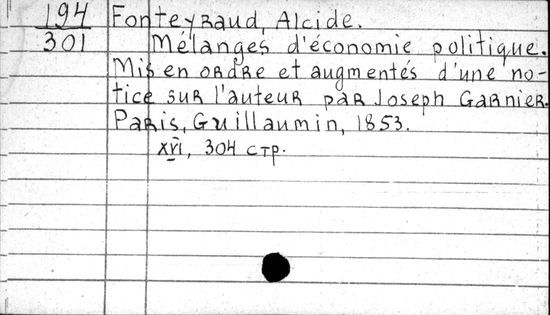 194 Fonteyraud, Alcide.
301 Mélanges d'économie politique.
Mis en ordre et augmentés d'une no-
tice sur l'auteur par Joseph Garnier.
Paris, Guillaumin, 1853.
XVI, 304 стр.